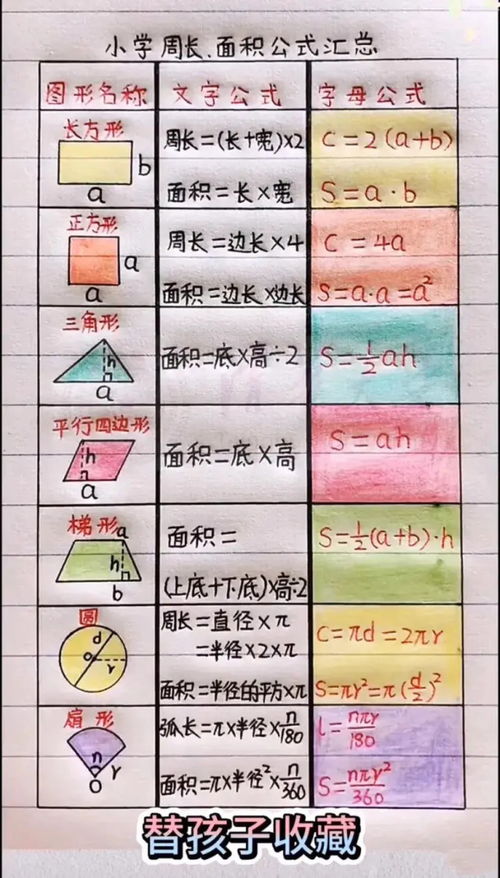 小学周长、面积公式汇总
图形名称 文字公式 字母公式
长方形
b
a
周长=(长+宽)×2
C=2(a+b)
面积=长×宽
S=a·b
正方形
a
a
周长=边长×4
C=4a
面积=边长×边长
S=a·a=a²
三角形
h
a
面积=底×高÷2
S=½ah
平行四边形
h
a
面积=底×高
S=ah
梯形
a
h
b
面积=
(上底+下底)×高÷2
S=½(a+b)·h
圆
d
o
r
周长=直径×π
=半径×2×π
C=πd=2πr
面积=半径的平方×π
S=πr²=π(d/2)²
扇形
n
r
O
弧长=π×半径×n/180
l=nπr/180
面积=π×半径²×n/360
S=nπr²/360
替孩子收藏